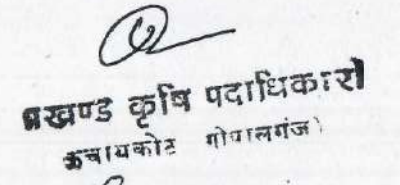 प्रखण्ड कृषि पदाधिकारी
कुचायकोट गोपालगंज